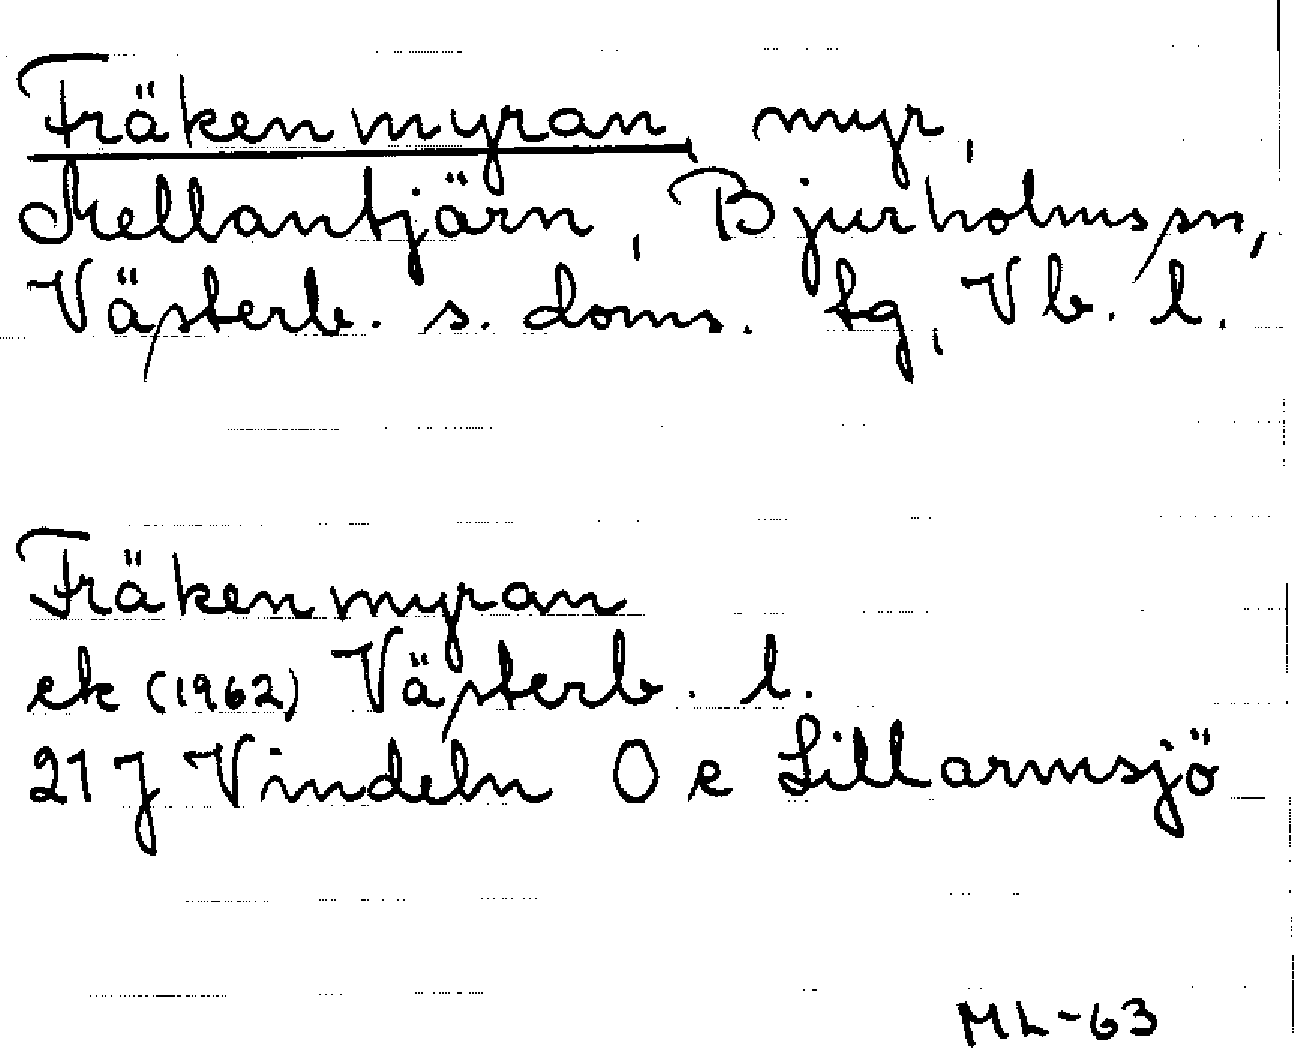 Fräkenmyran, myr,
Mellantjärn, Bjurholms sn,
Västerb. s. doms. tg, Vb. l.
Fräkenmyran
ek (1962) Västerb. l.
21 J Vindeln 0 e Lillarmsjö
ML-63